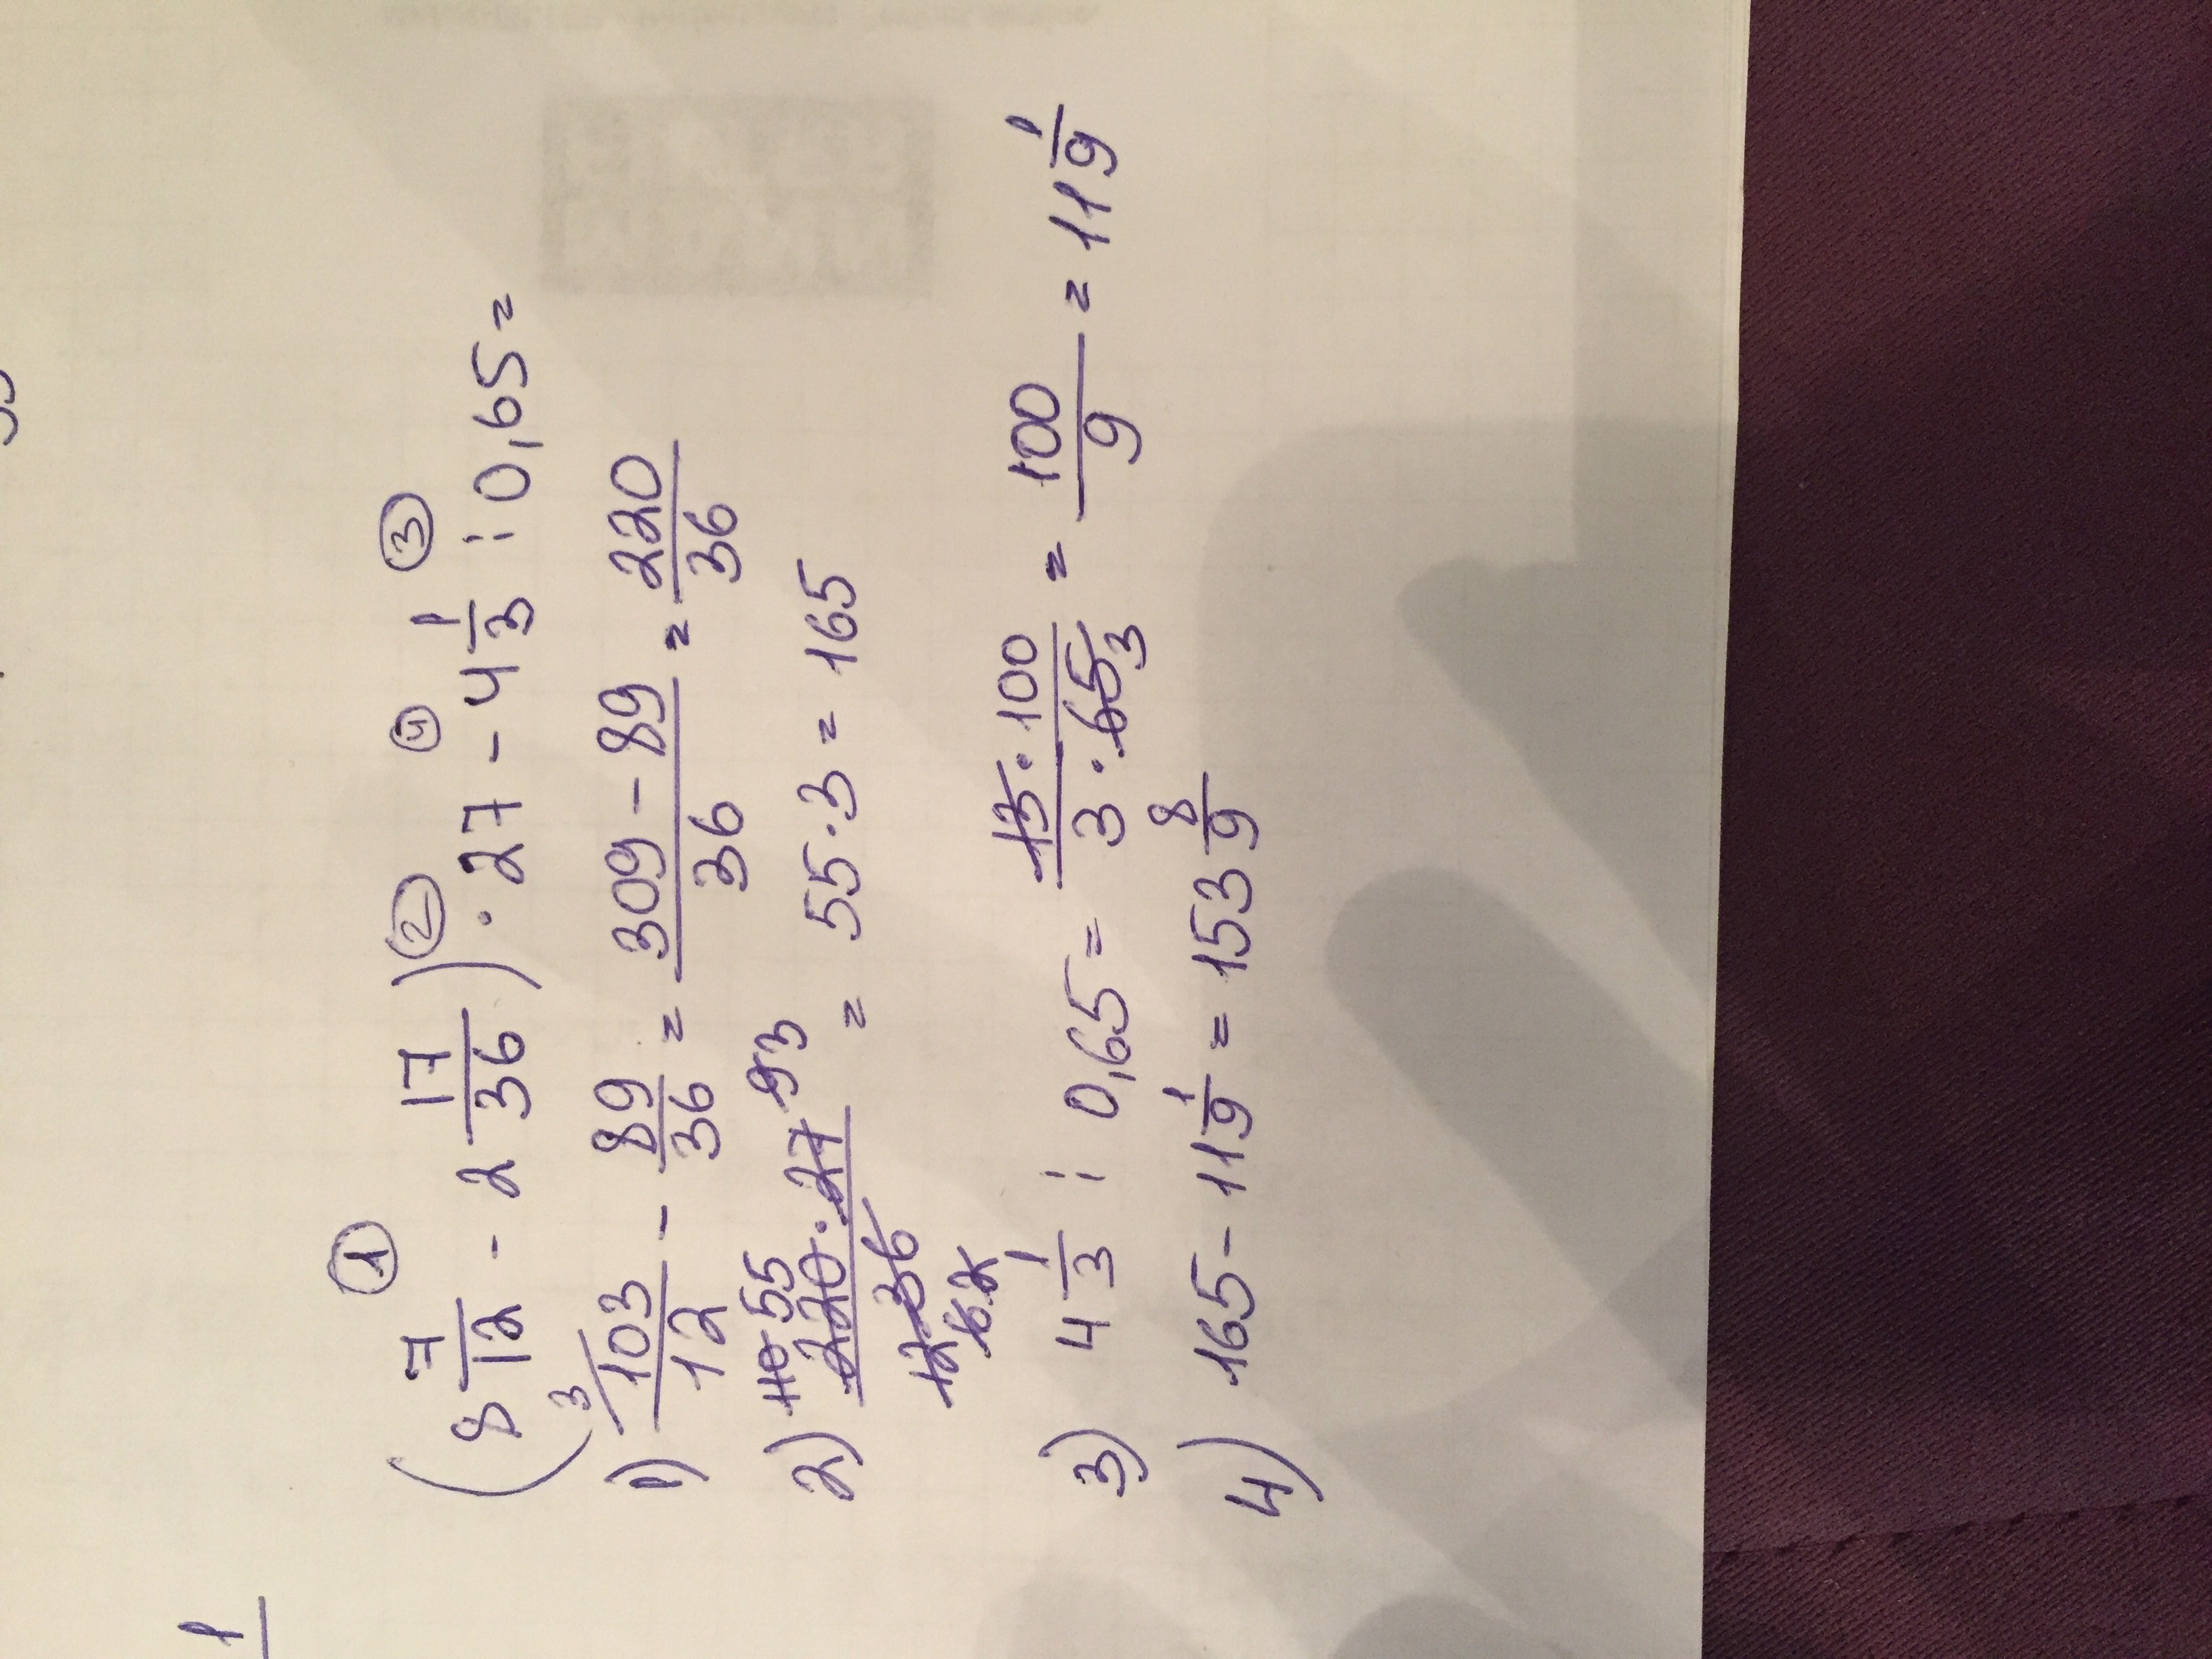 (8 7/12 - 2 17/36) · 27 - 4 1/3 : 0,65 =
1 2 4 3
1) 3 103/12 - 89/36 = 309 - 89/36 = 220/36
2) 110 55 220 · 27 9 3/12 36 6 2 = 55 · 3 = 165
3) 4 1/3 : 0,65 = 13 · 100/3 · 65 3 = 100/9 = 11 1/9
4) 165 - 11 1/9 = 153 8/9